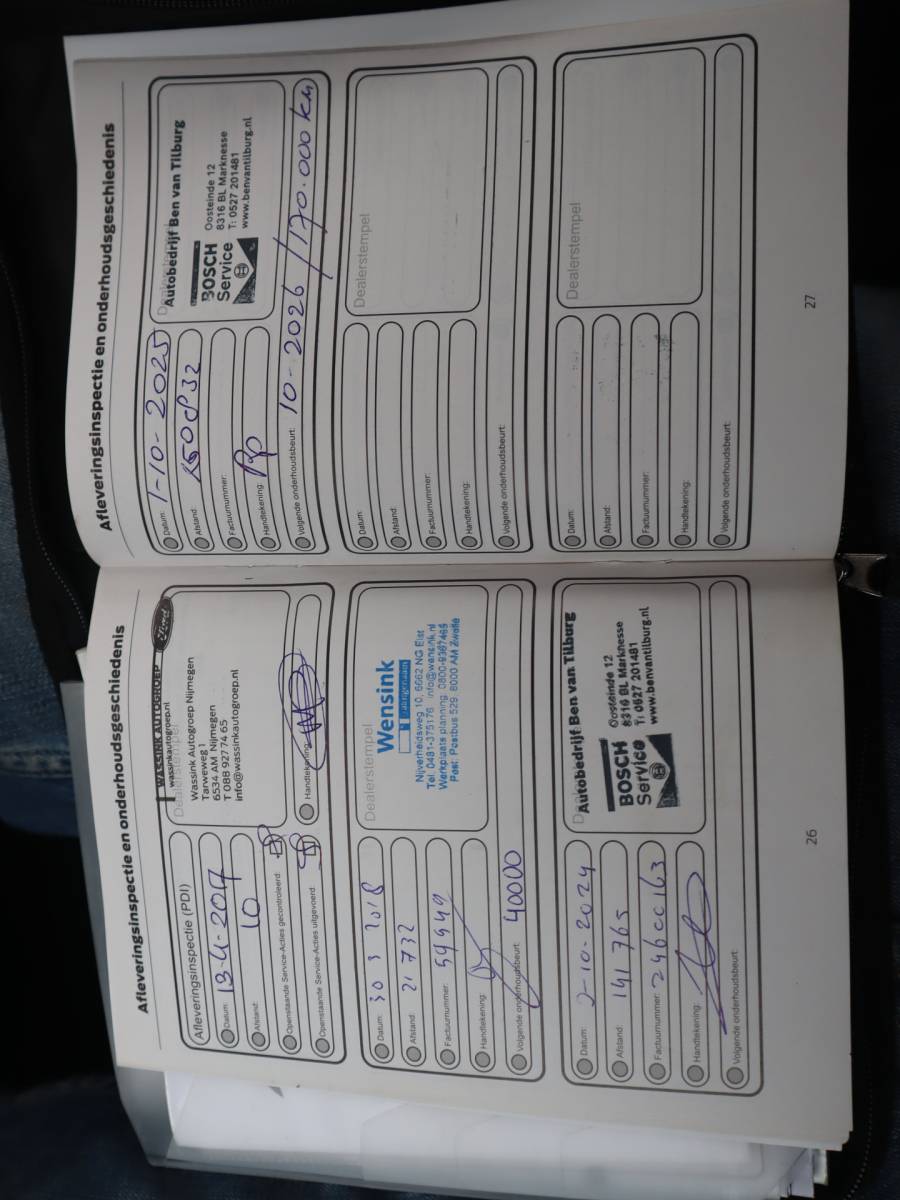 Afleveringsinspectie en onderhoudsgeschiedenis
Afleveringsinspectie (PDI)
Datum: 13-4-2017
Afstand: 10
Openstaande Service-Acties gecontroleerd:
Openstaande Service-Acties uitgevoerd:
Dealerstempel
WASSINK AUTOGROEP
wassinkautogroep.nl
Ford
Wassink Autogroep Nijmegen
Tarweweg 1
6534 AM Nijmegen
T 088 927 74 65
info@wassinkautogroep.nl
Handtekening:
Datum: 30 3 2018
Afstand: 21 732
Factuurnummer: 59949
Handtekening:
Volgende onderhoudsbeurt: 40000
Dealerstempel
Wensink
Nijverheidsweg 10, 6662 NG Elst
Tel. 0481-375176 info@wensink.nl
Werkplaats planning: 0800-9367465
Post: Postbus 529, 8000 AM Zwolle
Datum: 2-10-2024
Afstand: 141765
Factuurnummer: 246cc163
Handtekening:
Volgende onderhoudsbeurt:
Autobedrijf Ben van Tilburg
BOSCH
Service
Oosteinde 12
8316 BL Marknesse
T: 0527 201481
www.benvantilburg.nl
26
Afleveringsinspectie en onderhoudsgeschiedenis
Datum: 1-10-2025
Afstand: 150832
Factuurnummer:
Handtekening:
Volgende onderhoudsbeurt: 10-2026/170.000 km
Autobedrijf Ben van Tilburg
BOSCH
Service
Oosteinde 12
8316 BL Marknesse
T: 0527 201481
www.benvantilburg.nl
Datum:
Afstand:
Factuurnummer:
Handtekening:
Volgende onderhoudsbeurt:
Dealerstempel
Datum:
Afstand:
Factuurnummer:
Handtekening:
Volgende onderhoudsbeurt:
Dealerstempel
27